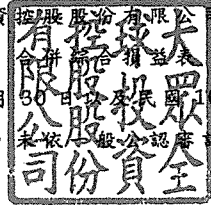 控股股份有限公
合併綜合損益表
30 日以及民國 1
未依一般公認審
大眾全
球投資
控股股份
有限公司